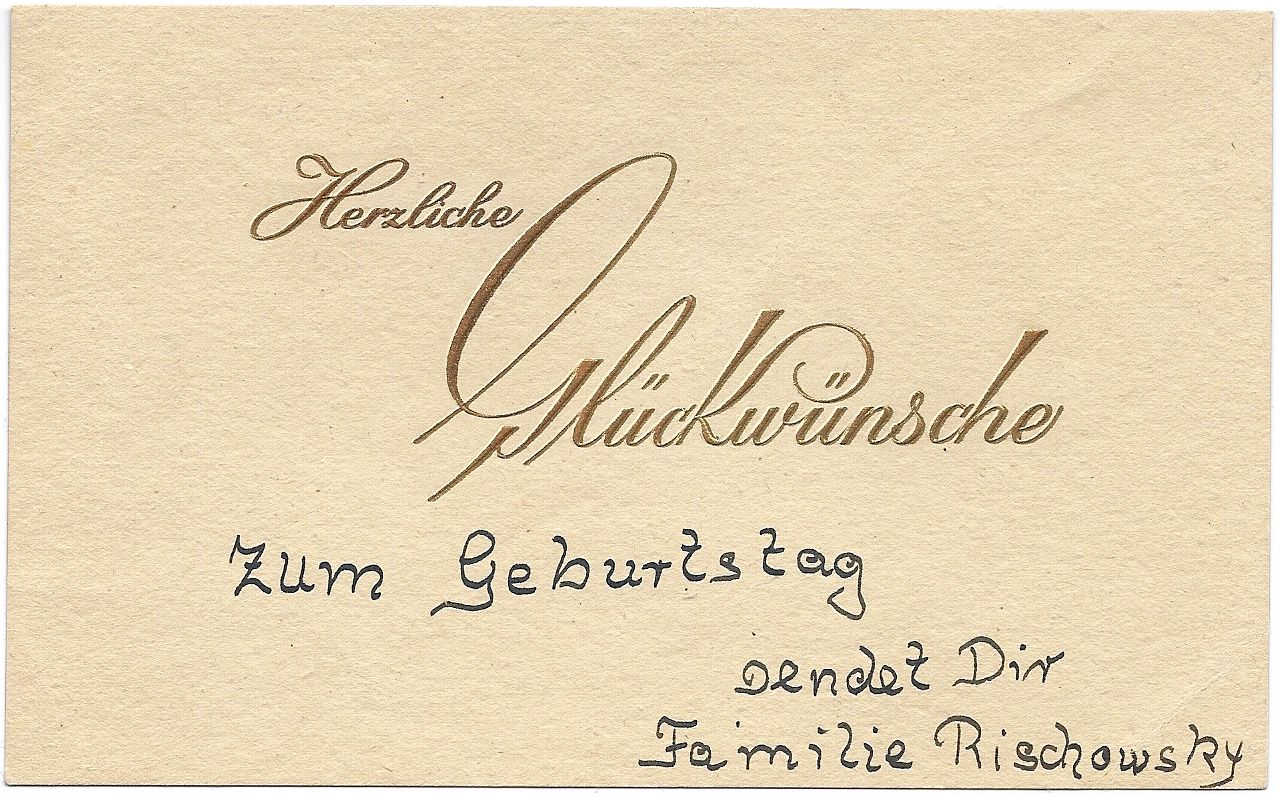 Herzliche
Glückwünsche
Zum Geburtstag
sendet Dir
Familie Rischowsky